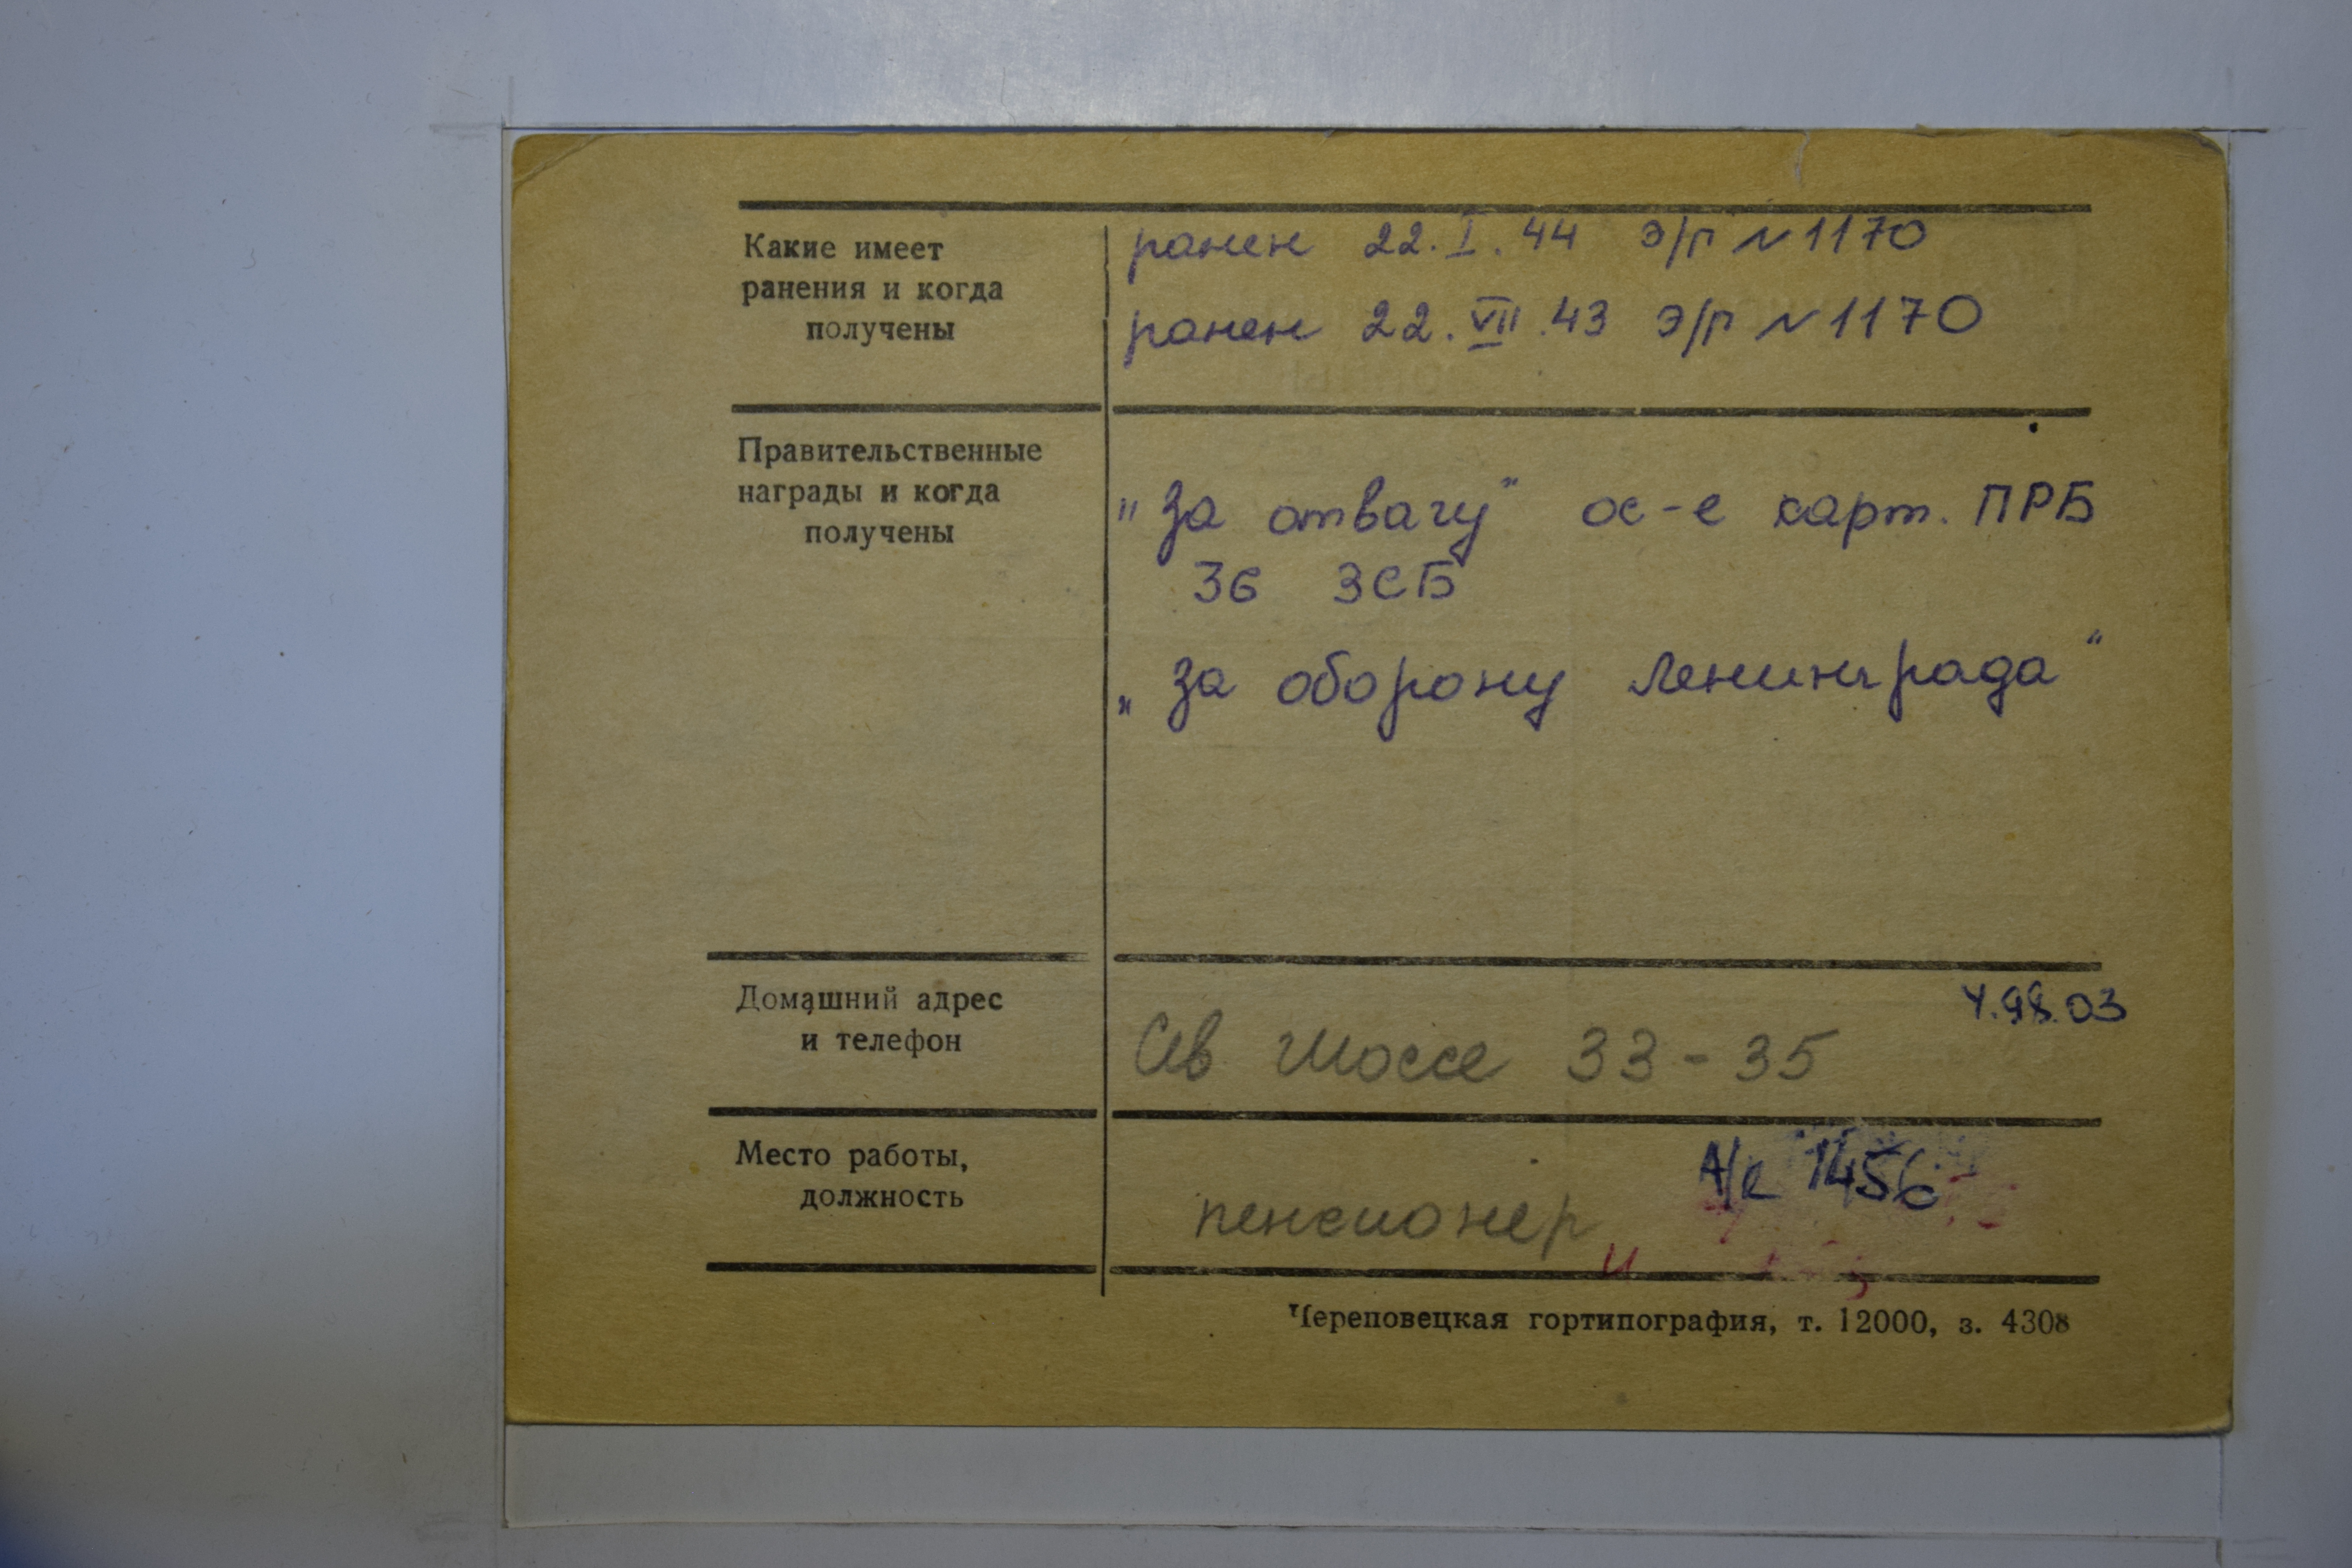 Какие имеет
ранения и когда
получены
ранен 22.I.44 э/г N 1170
ранен 22.VII.43 э/г N 1170
Правительственные
награды и когда
получены
"За отвагу" ос-е карт. ПРБ
36 ЗСБ
„За оборону Ленинграда"
Домашний адрес
и телефон
4.98.03
Шоссе 33-35
Место работы,
должность
пенсионер
1456
Череповецкая гортипография, т. 12000, з. 4308